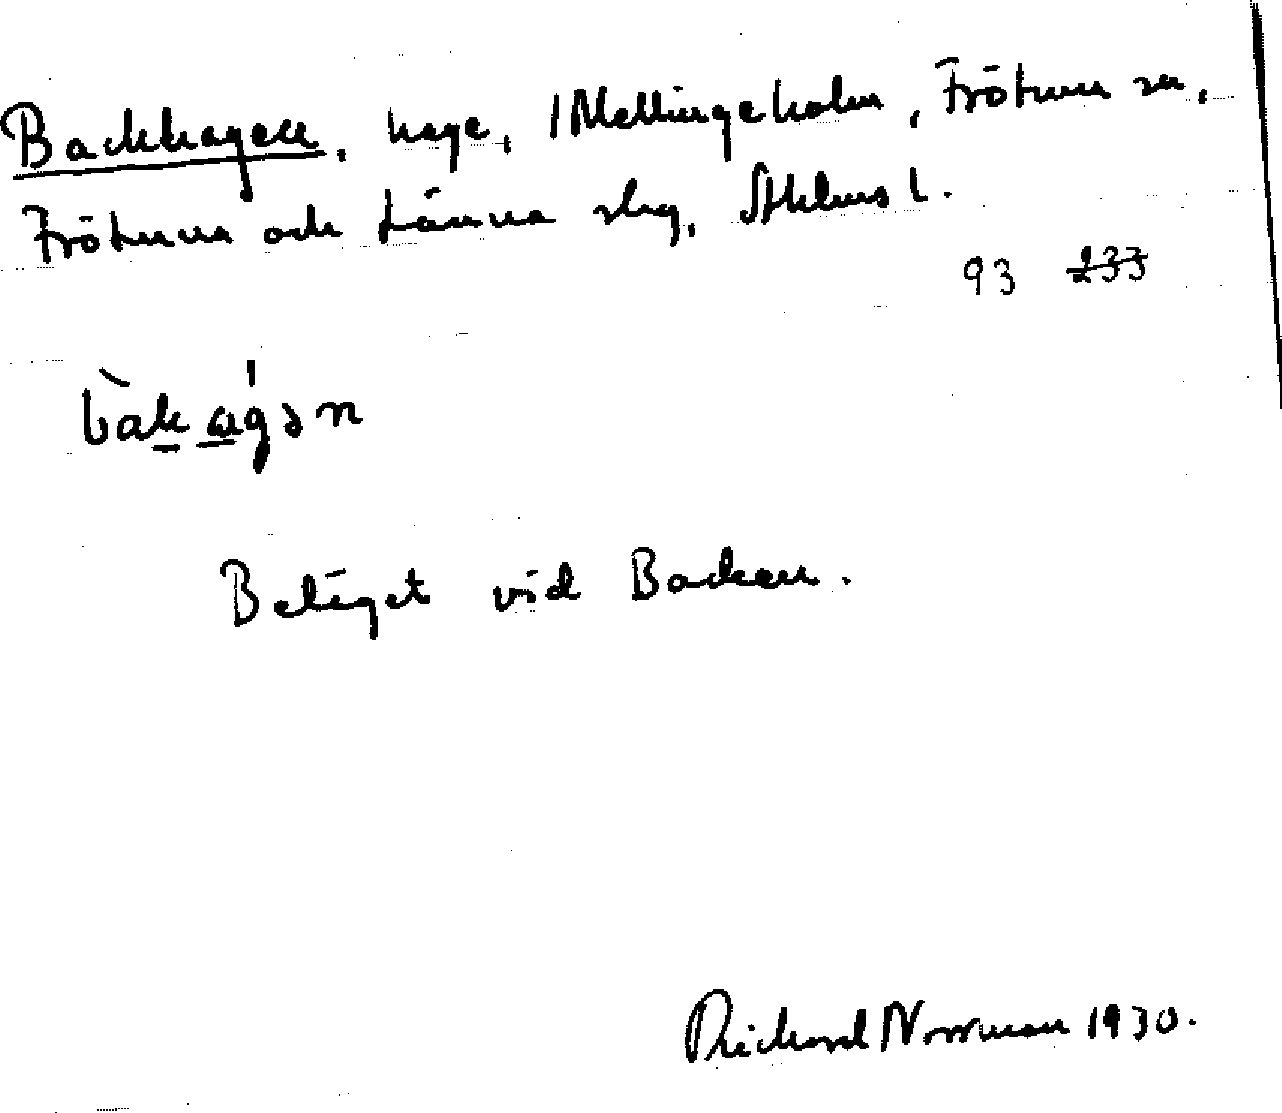 Backhagen, hage, Mellingeholm, Frötuna sn,
Frötuna och Länna skg, Sthlms l.
93 233
bàkạgən
Beläget vid Backen.
Rickard Norrman 1930.